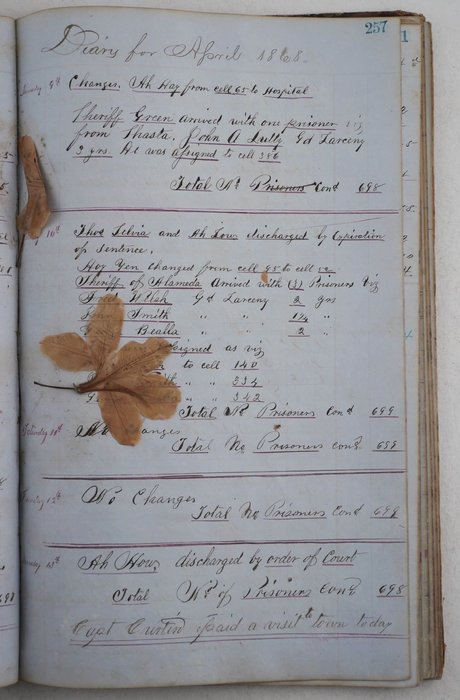 257
Diary for April 1868.
9th Changes. Ah Hay from cell 65 to Hospital
Sheriff Green arrived with one prisoner viz
from Shasta. John A Gd Larceny
3 yrs. He was assigned to cell 386
Total No Prisoners Cond 698
10th Thos Silvia and Ah Low discharged by Expiration
of Sentence.
Hoy Yen changed from cell 95 to cell
Sheriff of Alameda arrived with (3) Prisoners viz
Welsh Gd Larceny 2 yrs
Smith " " 1½ "
Bealla " " 2 "
assigned as viz
to cell 140
" " 334
" " 342
Total No Prisoners Cond 699
Saturday No Changes
Total No Prisoners Cond 699
12th No Changes
Total No Prisoners Cond 699
13th Ah How discharged by order of Court
Total No of Prisoners Cond 698
Capt Curtin paid a visit to town today